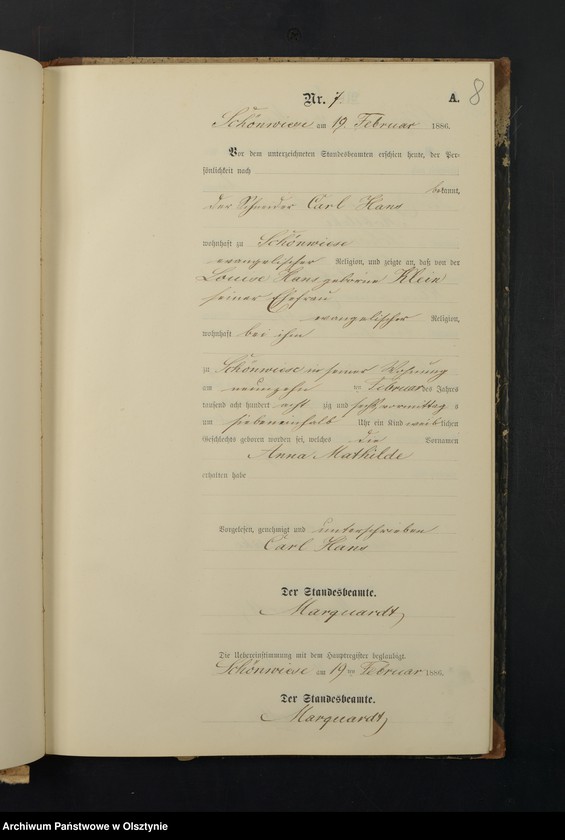 Nr. 7. A. 8
Schönwiese am 19. Februar 1886.
Vor dem unterzeichneten Standesbeamten erschien heute, der Per-
sönlichkeit nach
bekannt,
der Carl Hans
wohnhaft zu Schönwiese
evangelischer Religion, und zeigte an, daß von der
Louise Hans geborene Klein
seiner Ehefrau
evangelischer Religion,
wohnhaft bei ihm
zu Schönwiese in seiner Wohnung
am neunzehn ten Februar des Jahres
tausend acht hundert acht zig und sechs vormittag s
um siebeneinhalb Uhr ein Kind weiblichen
Geschlechts geboren worden sei, welches die Vornamen
Anna Mathilde
erhalten habe
Vorgelesen, genehmigt und unterschrieben
Carl Hans
Der Standesbeamte.
Marquardt
Die Uebereinstimmung mit dem Hauptregister beglaubigt.
Schönwiese am 19ten Februar 1886.
Der Standesbeamte.
Marquardt
Archiwum Państwowe w Olsztynie